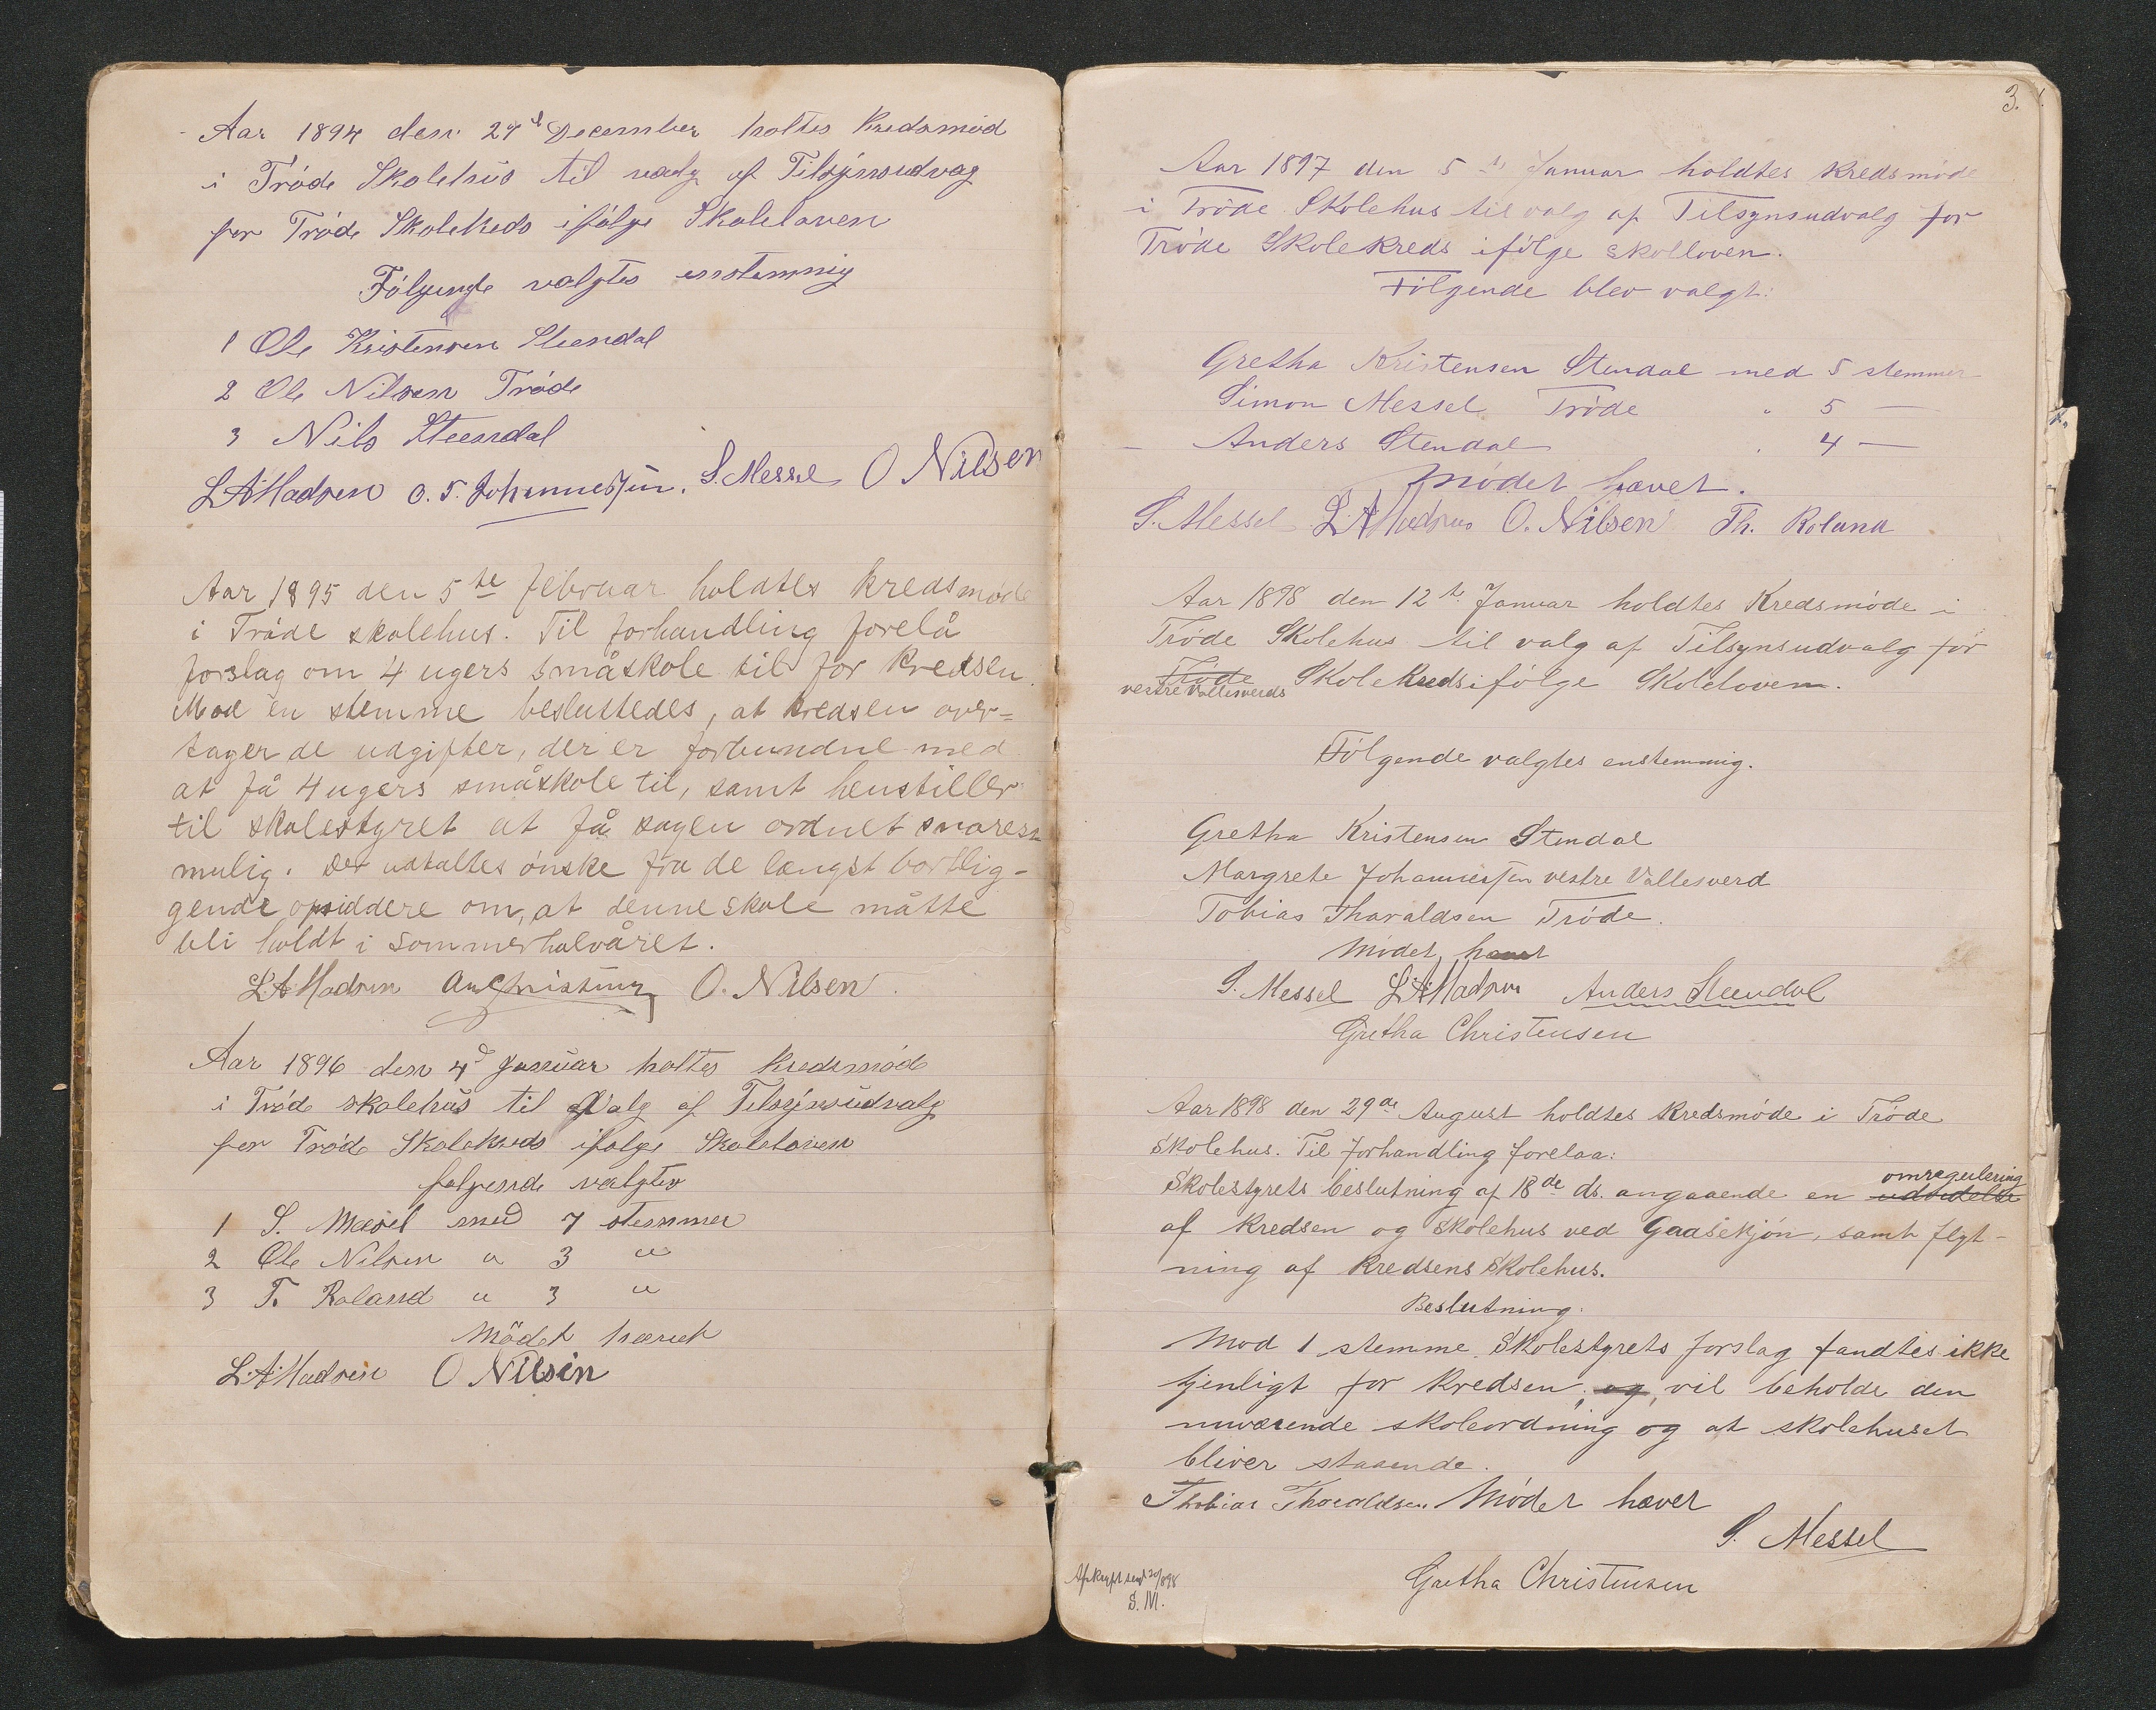 Aar 1894 den 27d December holtes Kredsmöd
i Tröde Skolehus til valg af Tilsynsudvag
for Tröde Skolekreds ifölge Skoleloven
Fölgende valgtes enstemmig
1 Ole Kristensen Steendal
2 Ole Nilsen Tröde
3 Nils Steendal
L A Madsen O. T. Johannessen. S. Messel O Nilsen
Aar 1895 den 5te februar holdtes kredsmøde
i Trøde skolehus. Til forhandling forelå
forslag om 4 ugers småskole til for kredsen.
Mod en stemme besluttedes, at kredsen over=
tager de udgifter, der er forbundne med
at få 4 ugers småskole til, samt henstiller
til skolestyret at få sagen ordnet snarest
mulig. Der udtaltes ønske fra de længst bortlig-
gende opsiddere om, at denne skole måtte
bli holdt i sommerhalvåret.
L A Madsen O. Nilsen.
Aar 1896 den 4d Januar holtes kredsmöd
i Tröde skolehus til Valg af Tilsynsudvalg
for Tröde Skolekreds ifölge Skoleloven
følgende valgtes
1 S. Mæsel med 7 stemmer
2 Ole Nilsen " 3 "
3 T. Roland " 3 "
Mödet hævet
L A Madsen O Nilsin
3.
Aar 1897 den 5te Januar holdtes Kredsmøde
i Trøde Skolehus til valg af Tilsynsudvalg for
Trøde Skolekreds ifölge skolloven.
Følgende blev valgt:
Gretha Kristensen Stendal med 5 stemmer
Simon Messel Trøde " 5 —
Anders Stendal " 4 —
Mødet hævet.
S. Messel L A Madsen O. Nilsen Th. Roland
Aar 1898 den 12te Januar holdtes Kredsmøde i
Trøde Skolehus til valg af Tilsynsudvalg for
Trøde Skolekreds ifölge Skoleloven.
vestre Vallesverds
Følgende valgtes enstemmig.
Gretha Kristensen Stendal
Margrete Johannessen vestre Vallesverd
Tobias Tharaldsen Trøde.
Mødet hævet
S. Messel L A Madsen Anders Steendal
Gretha Christensen
Aar 1898 den 29de August holdtes Kredsmøde i Trøde
Skolehus. Til forhandling forelaa:
omregulering
Skolestyrets beslutning af 18de ds. angaaende en udvidelse
af Kredsen og Skolehus ved Gaasekjøn, samt flyt-
ning af Kredsens Skolehus.
Beslutning.
Mod 1 stemme. Skolestyrets forslag fandtes ikke
tjenligt for Kredsen, og vil beholde den
nuværende skoleordning og at skolehuset
bliver staaende.
Thobias Tharaldsen Mødet hævet
S. Messel
Gretha Christensen
Afskrift send 30/8 98
S. M.